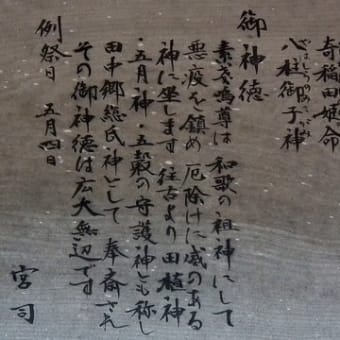 奇稲田姫命
八柱御子神
御神徳
素戔嗚尊は 和歌の祖神にして
悪疫を鎮め 厄除けに威のある
神に坐します 往古より田植神
・五月神・五穀の守護神とも称し
田中郷総氏神として 奉斎され
その御神徳は広大無辺です
例祭日 五月四日
宮司